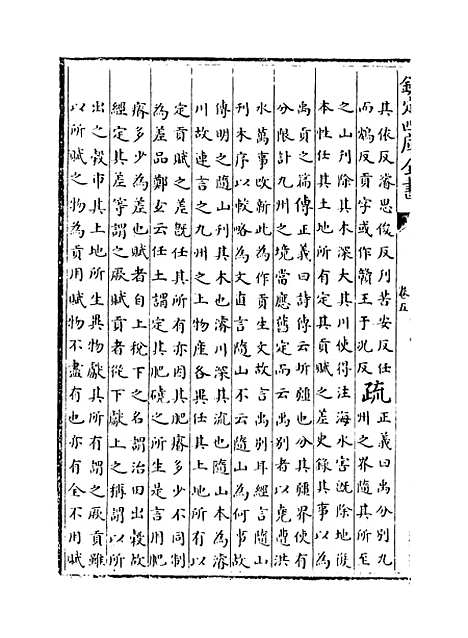 欽定四庫全書
卷五
其依反濬思俊反刋苦安反任
而鴆反貢字或作贛王于况反
疏
正義曰禹分别九
州之界隨其所至
之山刋除其木深大其川使得注海水害既除地復
本性任其土地所有定其貢賦之差史録其事以為
禹貢之篇傳正義曰詩傳云圻疆也分其疆界使有
分限計九州之境當應舊定而云禹别者以堯遭洪
水萬事改新此為作貢生文故言禹别耳經言隨山
刋木序以較略為文直言隨山不云隨山為何事故
傳明之隨山刋其木也濬川深其流也隨山本為濬
川故連言之九州之土物産各異任其土地所有以
定貢賦之差既任其所有亦因其肥瘠多少不同制
為差品鄭玄云任土謂定其肥磽之所生是言用肥
瘠多少為差也賦者自上税下之名謂治田出穀故
經定其差等謂之厥賦貢者從下獻上之稱謂以所
出之穀市其土地所生異物獻其所有謂之厥貢雖
以所賦之物為貢用賦物不盡有也亦有全不用賦